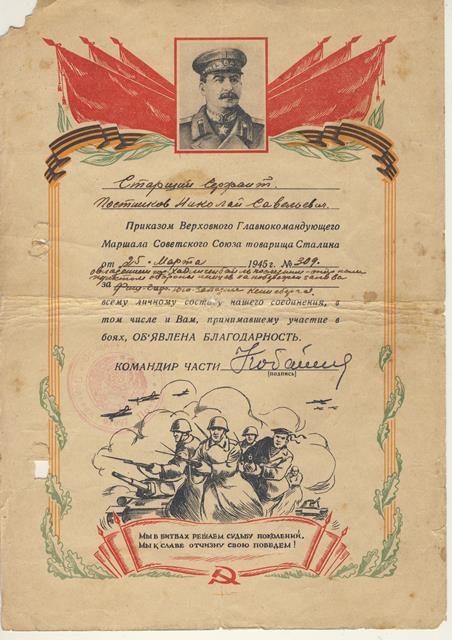 Старший Сержант.
Постников Николай Савельевич.
Приказом Верховного Главнокомандующего
Маршала Советского Союза товарища Сталина
от 25. Марта 1945 г. № 309.
овладении
за
всему личному составу нашего соединения, в
том числе и Вам, принимавшему участие в
боях, ОБ'ЯВЛЕНА БЛАГОДАРНОСТЬ.
КОМАНДИР ЧАСТИ
(подпись)
МЫ В БИТВАХ РЕШАЕМ СУДЬБУ ПОКОЛЕНИЙ,
МЫ К СЛАВЕ ОТЧИЗНУ СВОЮ ПОВЕДЕМ!